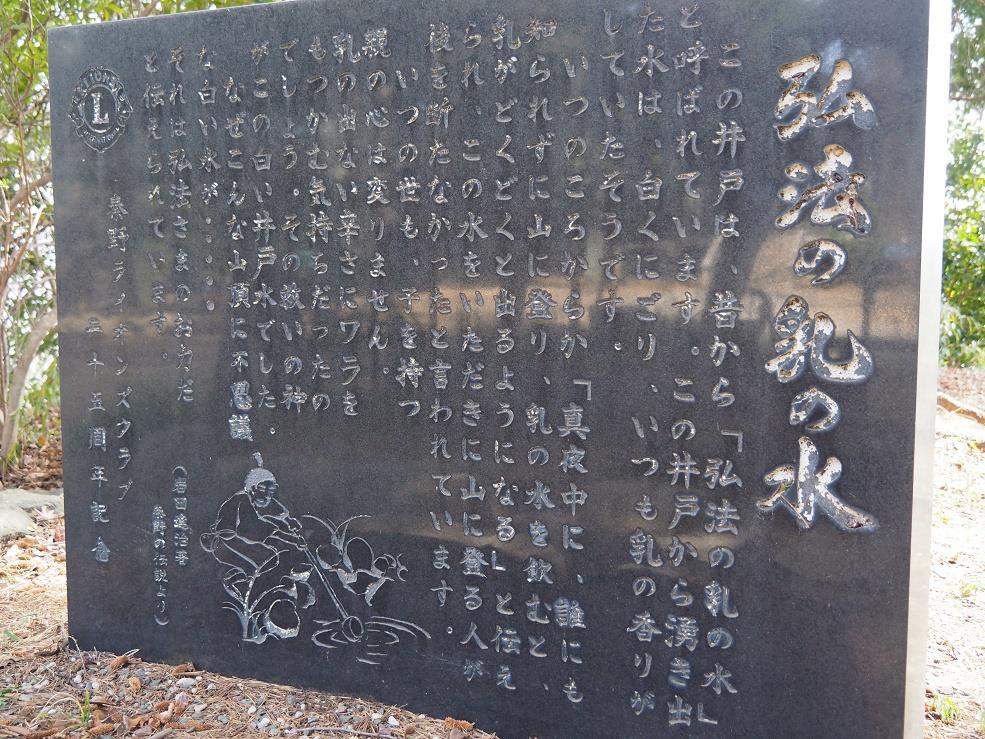 弘法の乳の水
この井戸は、昔から「弘法の乳の水」
と呼ばれています。この井戸から湧き出
た水は、白くにごり、いつも乳の香りが
していたそうです。
いつのころからか「真夜中に、誰にも
知られずに山に登り、乳の水を飲むと、
乳がどくどくと出るようになる」と伝え
られ、この水をいただきに山に登る人が
後を断たなかったと言われています。
いつの世も、子を持つ
親の心は変りません。
乳の出ない辛さにワラを
もつかむ気持ちだったの
でしょう。その救いの神
がこの白い井戸水でした。
なぜこんな山頂に不思議
な白い水が・・・。
それは弘法さまのお力だ
と伝えられています。
(岩田達治著
秦野の伝説より)
秦野ライオンズクラブ
三十五周年記念
LIONS
L